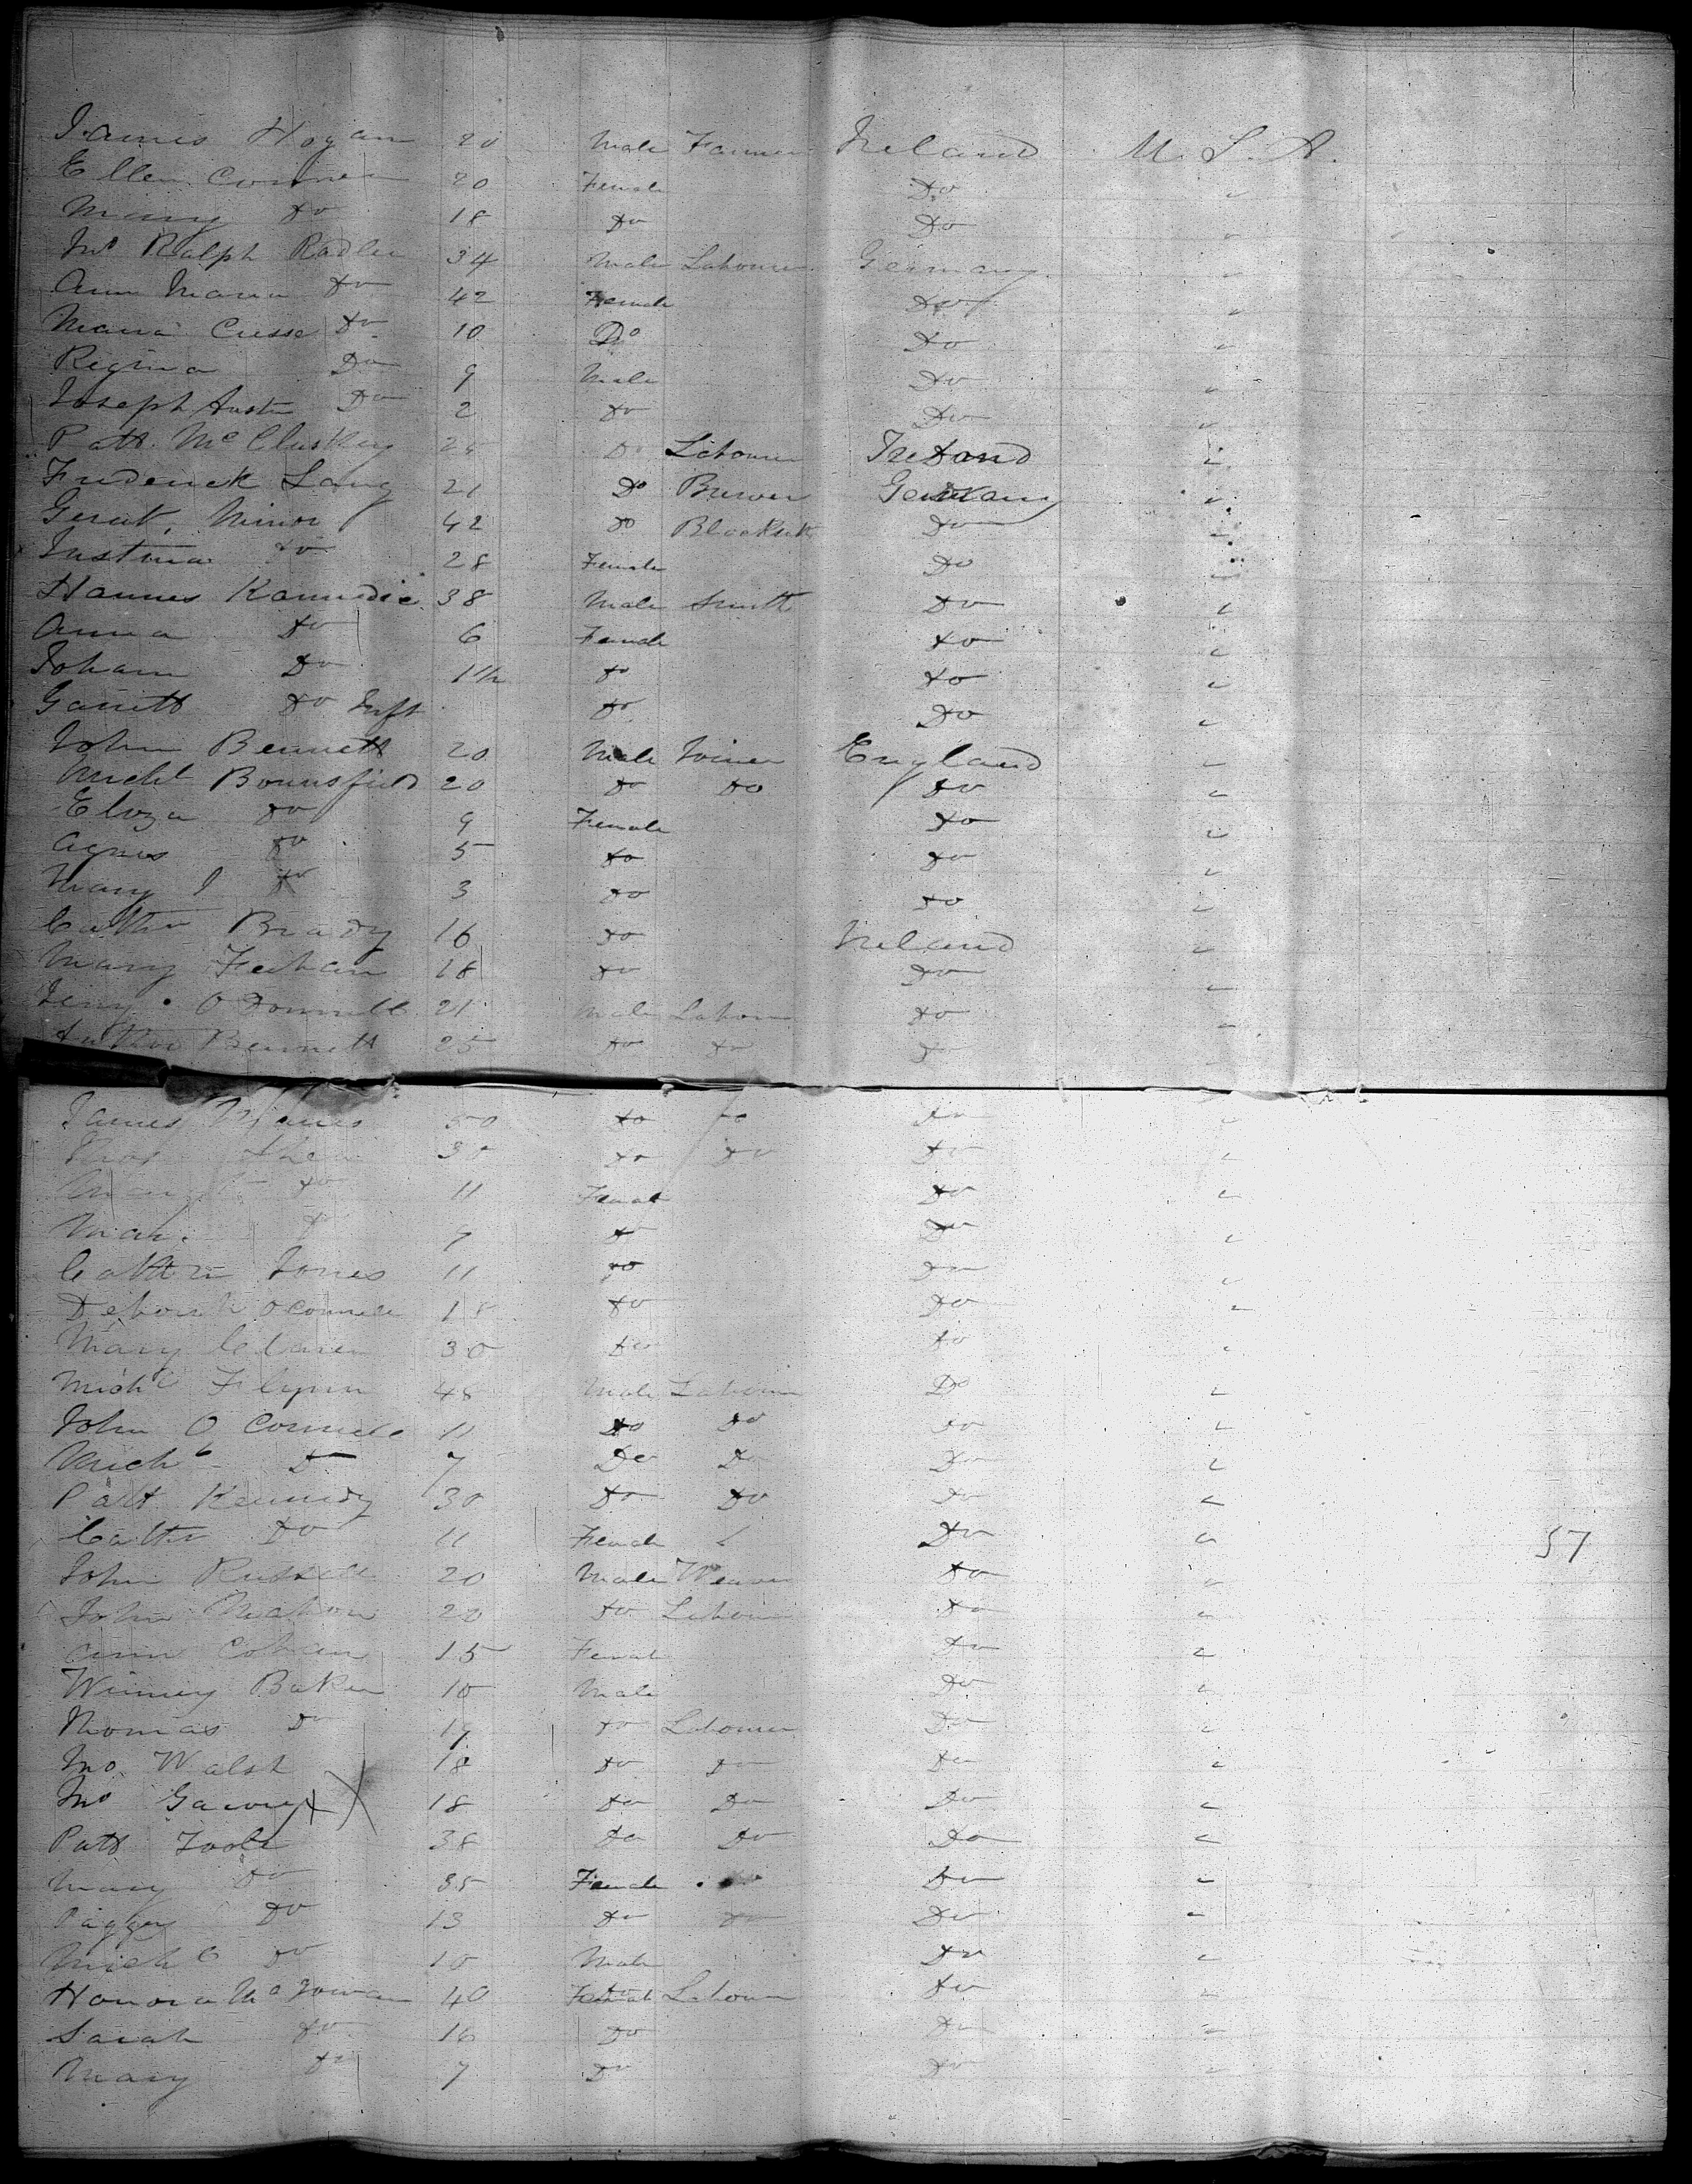 James Hogan 20 Male Farmer Ireland U. S. A.
Ellen Connor 20 Female Do "
Mary Do 18 Do Do "
Jno Ralph Radler 34 Male Labourer Germany "
Ann Maria Do 42 Female Do "
Maria Cresse Do 10 Do Do "
Regina Do 9 Male Do "
Joseph Austn Do 2 Do Do "
Patt. McCluskey Do Labourer Ireland "
Frederick Lang 21 Do Brewer Germany "
Gerat, Minor 42 Do Blacksmt Do "
Justina Do 28 Female Do "
Hannes Kannedie 38 Male Smith Do "
Anna Do 6 Female Do "
Joham Do 1½ Do Do "
Garrett Do Inft Do Do "
John Bennett 20 Male Joiner England "
Michl Bounsfield 20 Do Do Do "
Eliza Do 9 Female Do "
Agnes Do 5 Do Do "
Mary J Do 3 Do Do "
Cathn Brady 16 Do Ireland "
Mary Feehan 18 Do Do "
Jerry O Donnell 21 Male Labour Do "
Arthur Bennett 25 Do Do Do "
James 50 Do Do Do "
Thos Shea 30 Do Do Do "
Margt Do 11 Female Do "
Do 9 Do Do "
Cathn Jones 11 Do Do "
Deborah OConnell 18 Do Do "
Mary 30 Do Do "
Michl Flynn 48 Male Labourer Do "
John O Connell 11 Do Do Do "
Michl Do 7 Do Do Do "
Patt Kennedy 30 Do Do Do "
Cathn Do 11 Female " Do " 57
John Russell 20 Male Weaver Do "
John Mahon 20 Do Labourer Do "
Ann Cohan 15 Female Do "
Winney Baker 10 Male Do "
Thomas Do 17 Do Labourer Do "
Jno. Walsh 18 Do Do Do "
Jno Garvey X X 18 Do Do Do "
Patt Toole 38 Do Do Do "
Mary Do 35 Female Do "
Piggy Do 13 Do Do Do "
Michl Do 10 Male Do "
Honora McGowan 40 Female Labourer Do "
Sarah Do 16 Do Do "
Mary Do 7 Do Do "